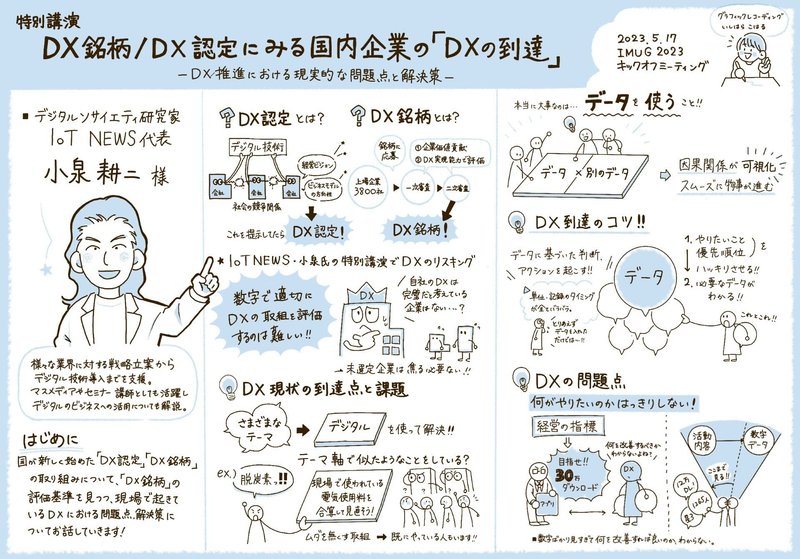 特別講演
DX銘柄/DX認定にみる国内企業の「DXの到達」
―DX推進における現実的な問題点と解決策―
2023.5.17
IMUG 2023
キックオフミーティング
グラフィックレコーディング
いしはら こはる
■デジタルソサイエティ研究家
IoT NEWS代表
小泉 耕二 様
様々な業界に対する戦略立案から
デジタル技術導入までを支援。
マスメディアやセミナー講師としても活躍し
デジタルのビジネスへの活用についても解説。
はじめに
国が新しく始めた「DX認定」「DX銘柄」
の取り組みについて、「DX銘柄」の
評価基準を見つつ、現場で起きて
いるDXにおける問題点、解決策に
ついてお話していきます!
DX認定とは?
デジタル技術
経営ビジョン
ビジネスモデル
の方向性
会社
会社
会社
社会の競争関係
これを提示してたら
DX認定!
DX銘柄とは?
銘柄に
応募
①企業価値貢献
②DX実現能力で評価
上場企業
3800社
一次審査
二次審査
DX銘柄!
★IoTNEWS・小泉氏の特別講演でDXのリスキング
数字で適切に
DXの取組を評価
するのは難しい!!
DX
自社のDXは
完璧だと考えている
企業はない…?
→未選定企業は焦る必要ない!!
DX現状の到達点と課題
さまざまな
テーマ
デジタル
を使って解決!!
テーマ軸で似たようなことをしている?
ex.)
脱炭素っ!!
現場で使われている
電気使用料を
合算して見直そう!
ムダを無くす取組 → 既にやっている人もいます!!
本当に大事なのは…
データを使うこと!!
データ×別のデータ
因果関係が可視化
スムーズに物事が進む
DX到達のコツ!!
データに基づいた判断、
アクションを起こす!!
データ
単位・記録のタイミング
が全てバラバラ。
とりあえず
データを入れた
だけでは…!!
1.やりたいこと
優先順位
を
ハッキリさせる!!
2.必要なデータが
わかる!!
これとこれ!!
DXの問題点
何がやりたいのかはっきりしない!
経営の指標
目指せ!!
30万
ダウンロード
アプリ
何を改善するべきか
わからないよね?
DX
活動
内容
数字
データ
ここまで
見る!!
■数字ばかり見すぎて何を改善すれば良いのか、わからない。